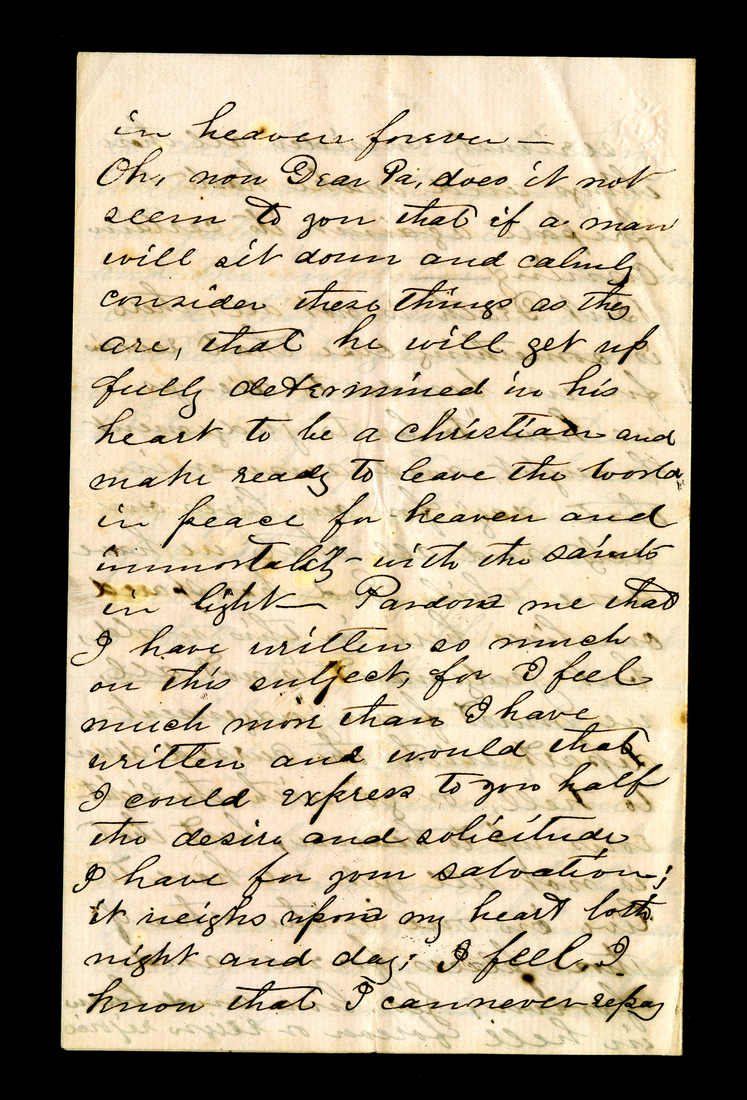 in heaven forever —
Oh, now Dear Pa, does it not
seem to you that if a man
will sit down and calmly
consider these things as they
are, that he will get up
fully determined in his
heart to be a christian and
make ready to leave the world
in peace for heaven and
immortality - with the saints
in light — Pardon me that
I have written so much
on this subject, for I feel
much more than I have
written and would that
I could express to you half
the desire and solicitude
I have for your salvation;
it weighs upon my heart both
night and day; I feel, I
know that I can never repay